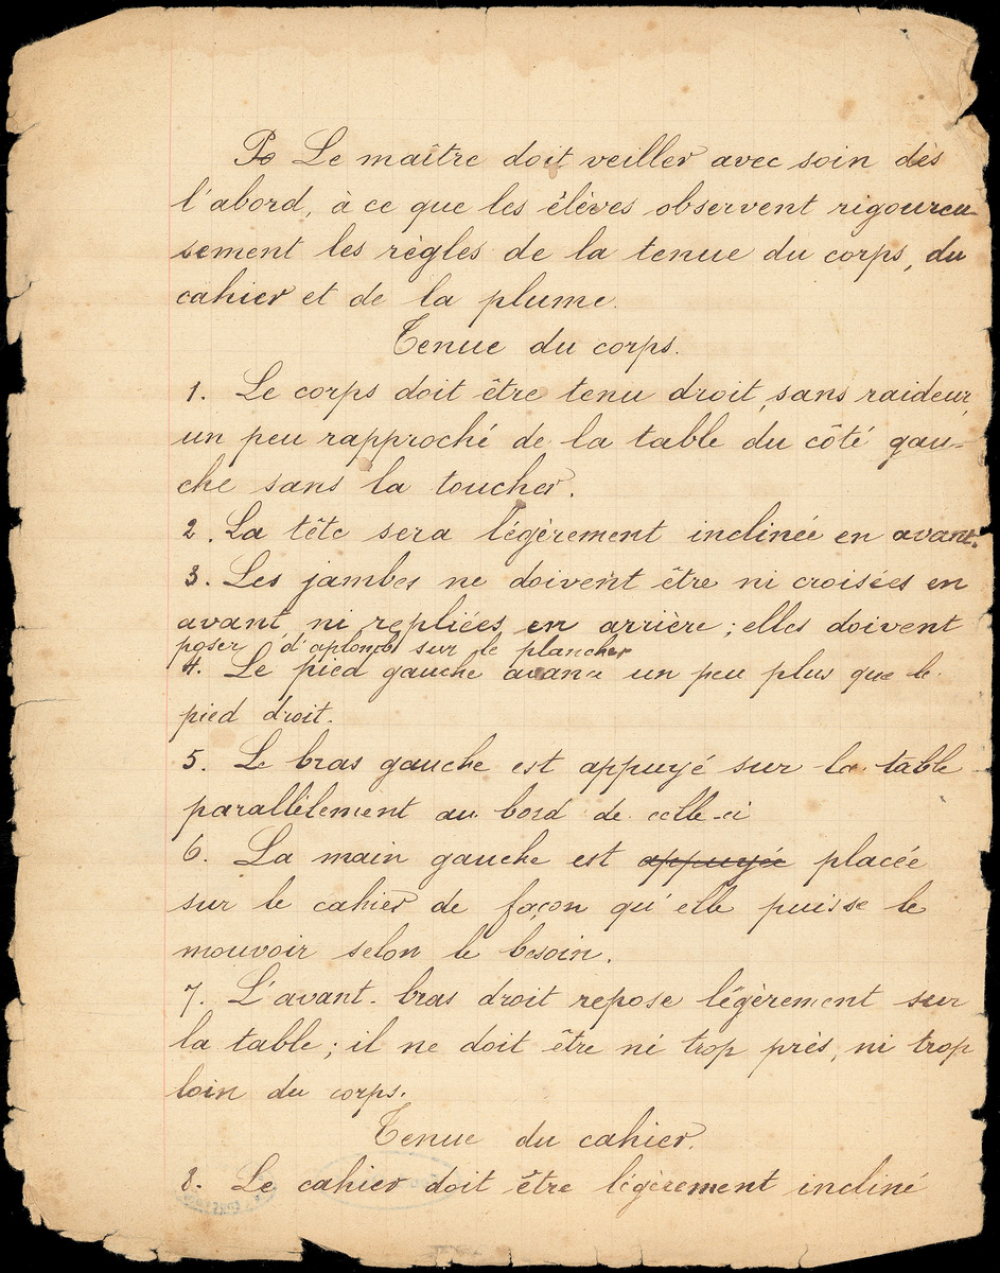 Le maître doit veiller avec soin dès
l'abord, à ce que les élèves observent rigoureu-
sement les règles de la tenue du corps, du
cahier et de la plume.
Tenue du corps.
1. Le corps doit être tenu droit, sans raideur,
un peu rapproché de la table du côté gau-
che sans la toucher.
2. La tête sera légèrement inclinée en avant.
3. Les jambes ne doivent être ni croisées en
avant, ni repliées en arrière ; elles doivent
poser d'aplomb sur le plancher
4. Le pied gauche avance un peu plus que le
pied droit.
5. Le bras gauche est appuyé sur la table
parallèlement au bord de celle-ci
6. La main gauche est appuyée placée
sur le cahier de façon qu'elle puisse le
mouvoir selon le besoin.
7. L'avant-bras droit repose légèrement sur
la table ; il ne doit être ni trop près, ni trop
loin du corps.
Tenue du cahier.
8. Le cahier doit être légèrement incliné